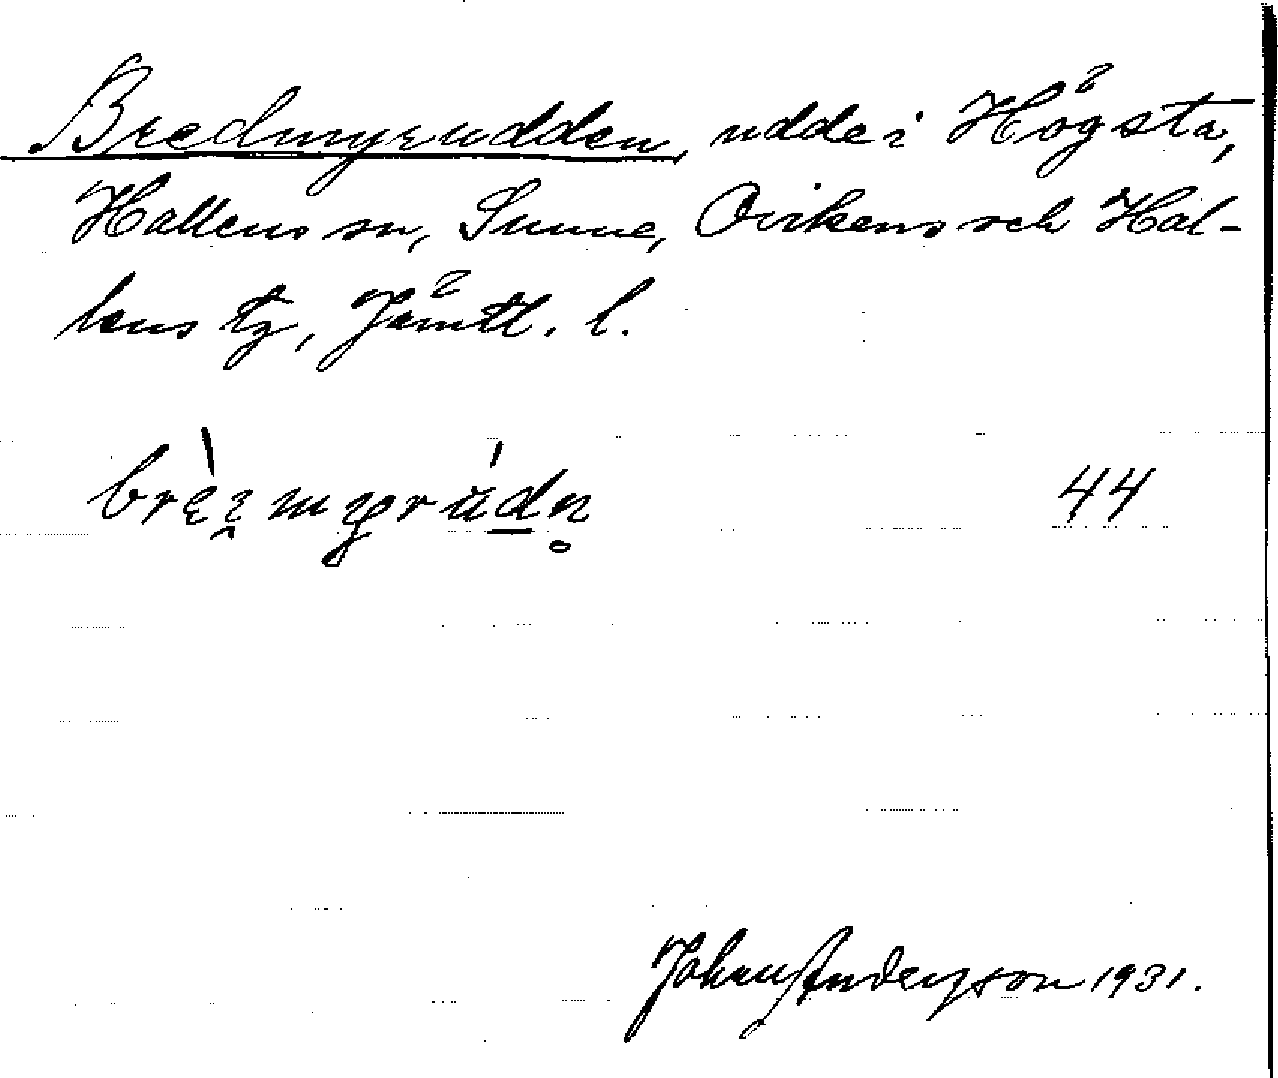 Bredmyrudden, udde i Högsta,
Hallens sn, Sunne, Ovikens och Hal-
lens tg, Jämtl. l.
44
Johan Anderzson 1931.